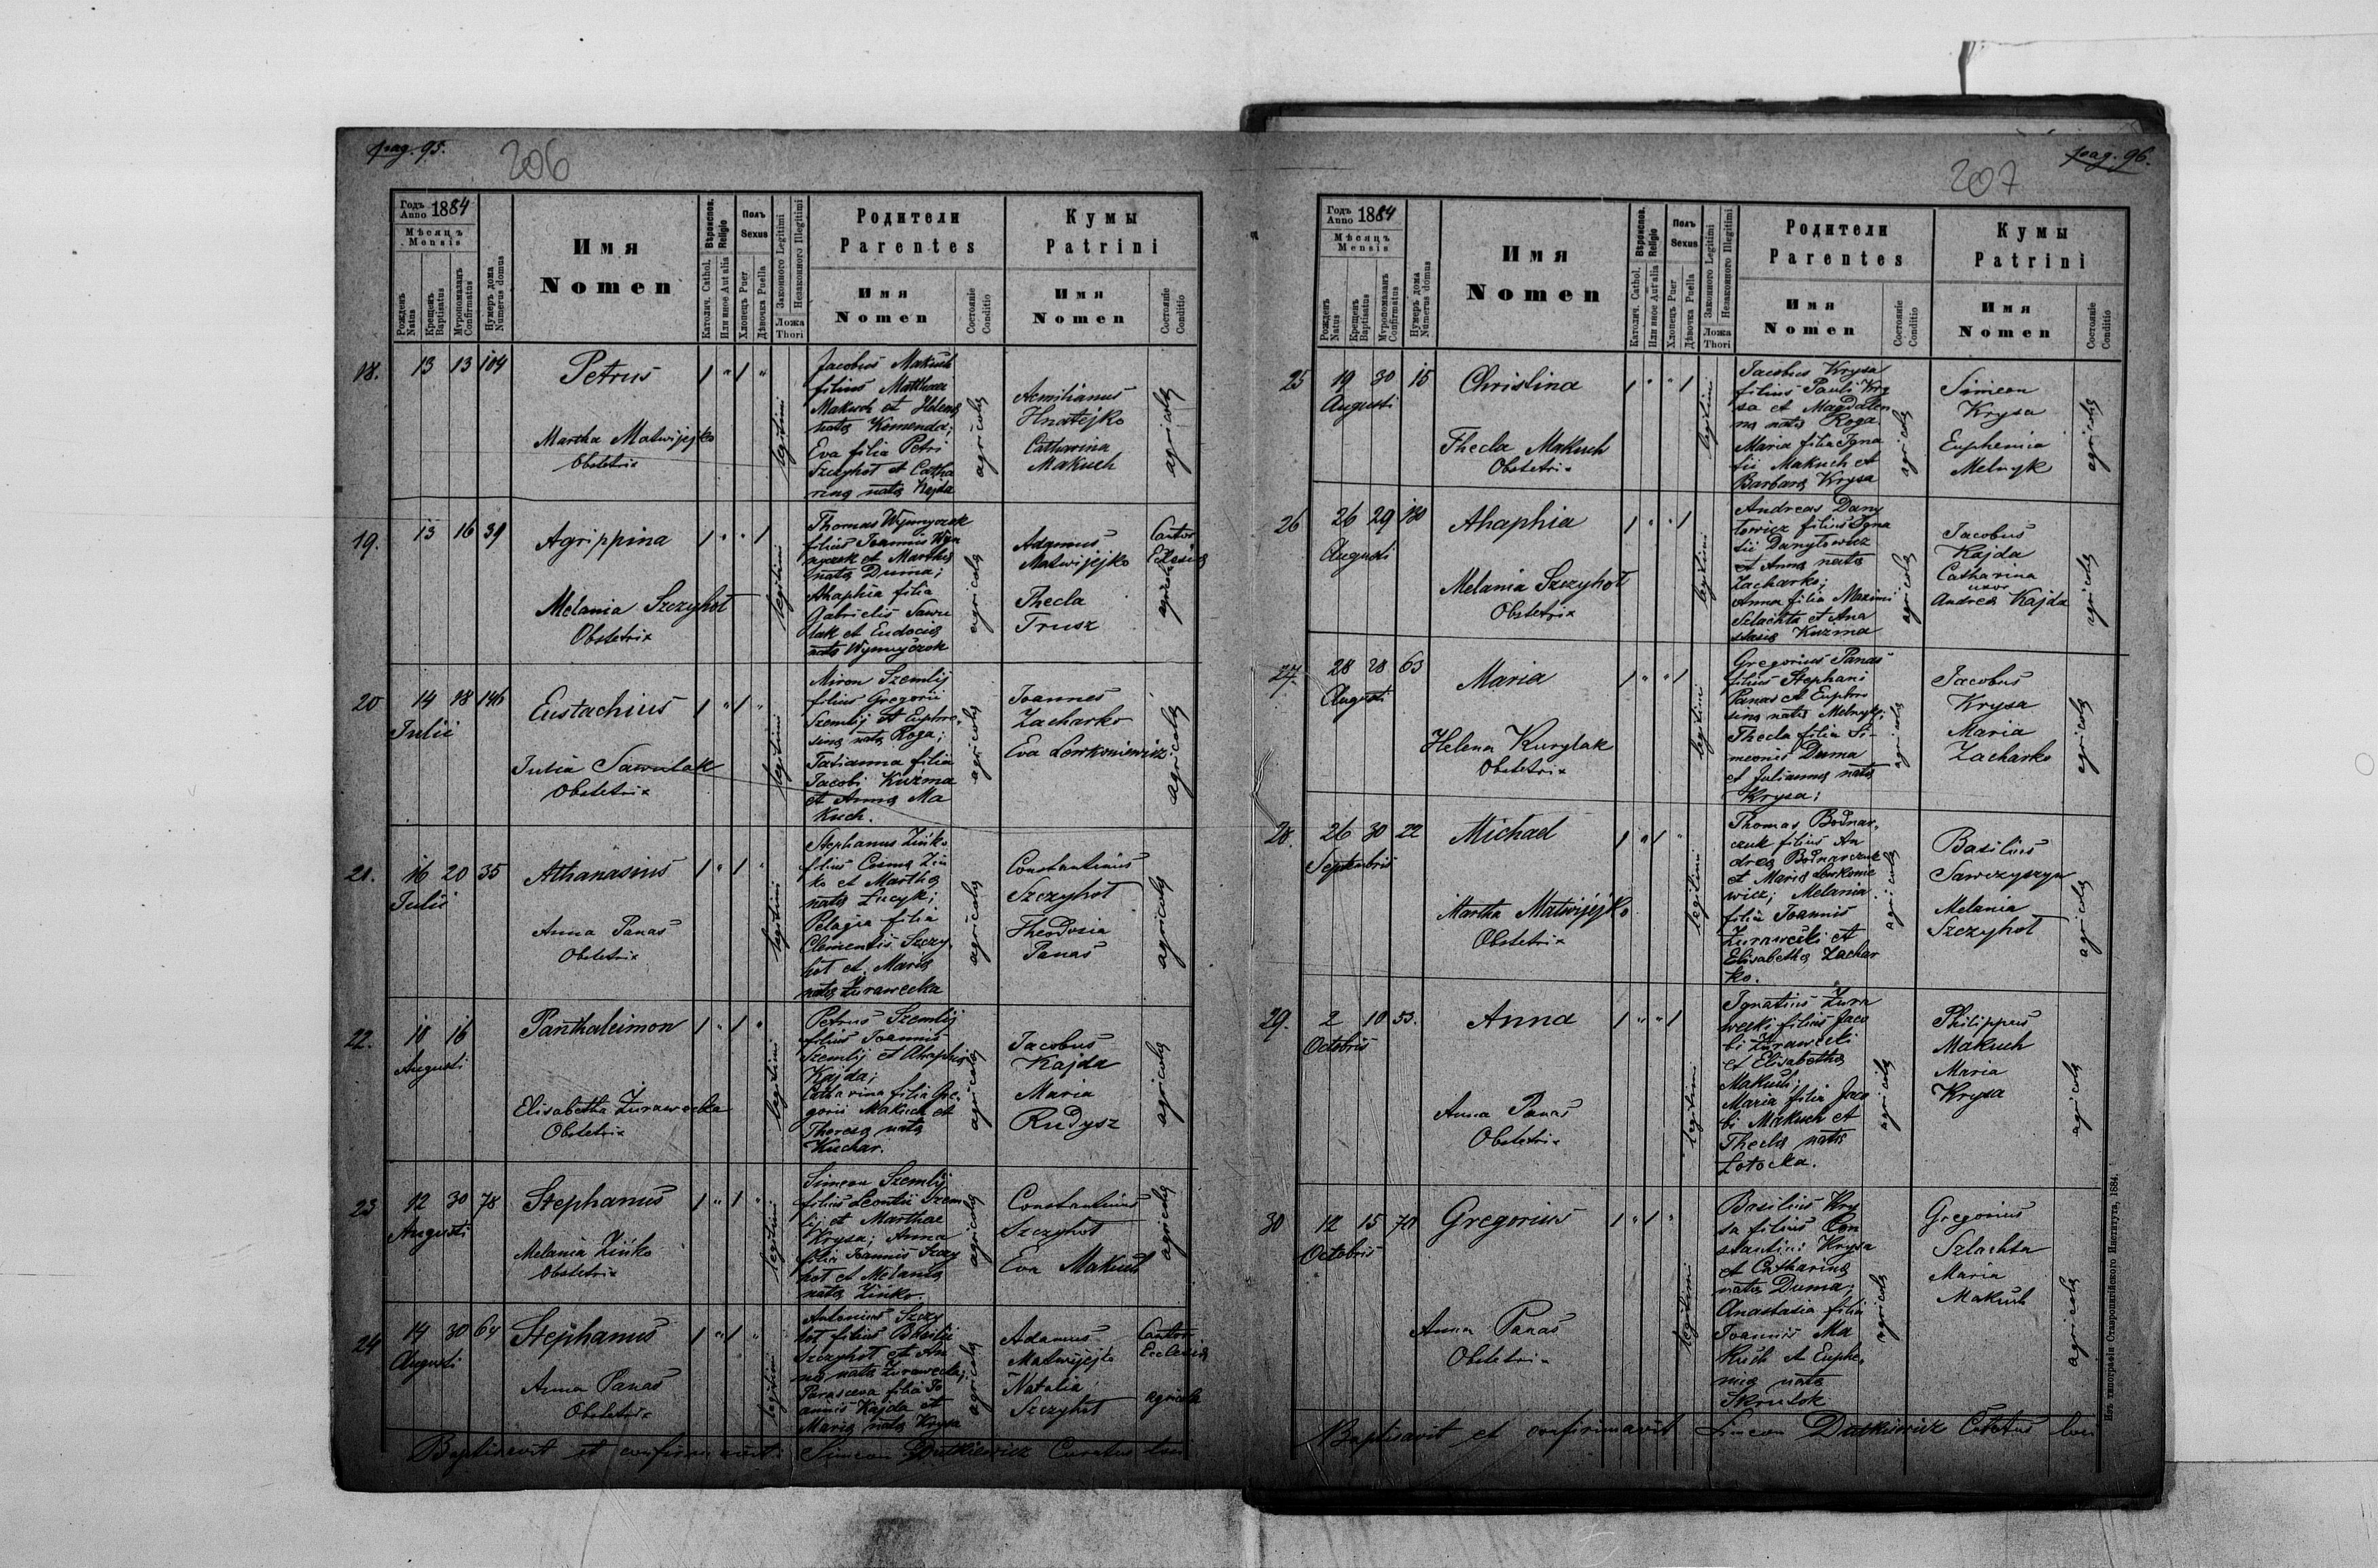 pag. 95.
206
Годъ
Anno 1884
Мѣсяцъ
Mensis
Рожденъ
Natus
Крещенъ
Baptisatus
Муропомазанъ
Confirmatus
Нумеръ дома
Numerus domus
Имя
Nomen
Вѣроиспов.
Religio
Католич. Cathol.
Или иное Aut alia
Полъ
Sexus
Хлопецъ Puer
Дѣвочка Puella
Законного Legitimi
Незаконного Illegitimi
Ложа
Thori
Родители
Parentes
Имя
Nomen
Состояніе
Conditio
Кумы
Patrini
Имя
Nomen
Состояніе
Conditio
18. 13 13 104
Petrus
Martha Matwijejko
Obstetrix
legitimi
Jacobus Makuch
filius Matthaei
Makuch et Helena
nata Komenda;
Eva filia Petri
Szczyhot et Catha
rina nata Kajda
agricola
Aemilianus
Hnatejko
Catharina
Makuch
agricola
19. 13 16 39
Agrippina
Melania Szczyhot
Obstetrix
legitimi
Thomas Wynnyczok
filius Joannis Wyn
nyczok et Martha
nata Duma;
Ahaphia filia
Gabrielis Sawu
lak et Eudocia
nata Wynnyczok
agricola
Adamus
Matwijejko
Thecla
Trusz
Cantor
Eclesia
agricola
20 14 18 146
Julii
Eustachius
Julia Sawulak
Obstetrix
legitimi
Miron Szemlij
filius Gregorii
Szemlij et Euphro
sina nata Roga;
Tatianna filia
Jacobi Kuzma
et Anna Ma
kuch.
agricola
Joannes
Zacharko
Eva Lewkoniewicz
agricola
21. 16 20 35
Julii
Athanasius
Anna Panas
Obstetrix
legitimi
Stephanus Zińko
filius Cosma Ziń
ko et Martha
nata Łucyk;
Pelagia filia
Clementis Szczy
hot et Maria
nata Żurawecka
agricola
Constantinus
Szczyhot
Theodosia
Panas
agricola
22. 10 16
Augusti
Panthaleimon
Elisabetha Żurawecka
Obstetrix
legitimi
Petrus Szemlij
filius Joannis
Szemlij et Ahaphia
Kajda;
Catharina filia Gre
gorii Makuch et
Theresa nata
Kuchar.
agricola
Jacobus
Kajda
Maria
Rudysz
agricola
23 12 30 78
Augusti
Stephanus
Melania Zińko
Obstetrix
legitimi
Simeon Szemlij
filius Leontii Szem
lij et Marthae
Krysa; Anna
filia Joannis Szczy
hot et Melania
nata Zińko.
agricola
Constantinus
Szczyhot
Eva Makuch
agricola
24 14 30 64
Augusti
Stephanus
Anna Panas
Obstetrix
legitimi
Antonius Szczy
hot filius Basilii
Szczyhot et An
na nata Żurawecka;
Parasceva filia Jo
annis Kajda et
Maria nata Krysa
agricola
Adamus
Matwijejko
Natalia
Szczyhot
Cantor
Ecclesia
agricola
Baptisavit et confirmavit: Simeon Dutkiewicz Curatus loci
pag. 96.
207
Годъ
Anno 1884
Мѣсяцъ
Mensis
Рожденъ
Natus
Крещенъ
Baptisatus
Муропомазанъ
Confirmatus
Нумеръ дома
Numerus domus
Имя
Nomen
Вѣроиспов.
Religio
Католич. Cathol.
Или иное Aut alia
Полъ
Sexus
Хлопецъ Puer
Дѣвочка Puella
Законного Legitimi
Незаконного Illegitimi
Ложа
Thori
Родители
Parentes
Имя
Nomen
Состояніе
Conditio
Кумы
Patrini
Имя
Nomen
Состояніе
Conditio
25 19 30 15
Augusti
Christina
Thecla Makuch
Obstetrix
legitimi
Jacobus Krysa
filius Pauli Kry
sa et Magdale
na nata Roga.
Maria filia Igna
tii Makuch et
Barbara Krysa
agricola
Simeon
Krysa
Euphemia
Melnyk
agricola
26 26 29 130
Augusti
Ahaphia
Melania Szczyhot
Obstetrix
legitimi
Andreas Dany
lowicz filius Igna
tii Danylowicz
et Anna nata
Zacharko;
Anna filia Maximi
Szlachta et Ana
stasia Kuzma
agricola
Jacobus
Kajda
Catharina
uxor
Andrea Kajda
agricola
27. 28 28 63
Augusti
Maria
Helena Kurylak
Obstetrix
legitimi
Gregorius Panas
filius Stephani
Panas et Euphro
sina nata Melnyk;
Thecla filia Si-
meonis Duma
et Julianna nata
Krysa;
agricola
Jacobus
Krysa
Maria
Zacharko
agricola
28. 26 30 22
Septembris
Michael
Martha Matwijejko
Obstetrix
legitimi
Thomas Bodnar
czuk filius An
drea Bodnarczuk
et Maria Lewkonie
wicz; Melania
filia Joannis
Żurawecki et
Elisabetha Zachar
ko.
agricola
Basilius
Sawczyszyn
Melania
Szczyhot
agricola
29. 2 10 53.
Octobris
Anna
Anna Panas
Obstetrix
legitimi
Ignatius Żura
wecki filius Jaco
bi Żurawecki
et Elisabetha
Makuch;
Maria filia Jaco
bi Makuch et
Thecla nata
Łotocka.
agricola
Philippus
Makuch
Maria
Krysa
agricola
30 12 15 70
Octobris
Gregorius
Anna Panas
Obstetrix
legitimi
Basilius Kry
sa filius Con
stantini Krysa
et Catharina
nata Duma;
Anastasia filia
Joannis Ma
kuch et Euphe
mia nata
Skrutok
agricola
Gregorius
Szlachta
Maria
Makuch
agricola
Baptisavit et confirmavit Simeon Dutkiewicz loci
Изъ типографіи Ставропигійского Института, 1884.